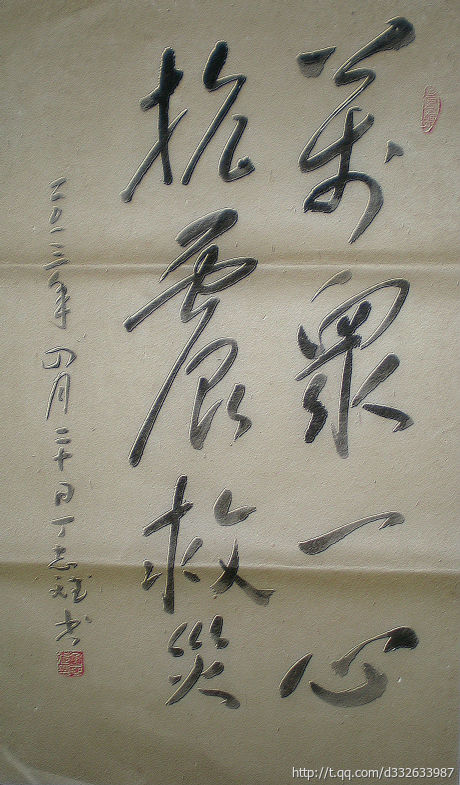 萬眾一心
抗震救災
二〇一三年四月二十日丁志斌书
http://t.qq.com/d332633987